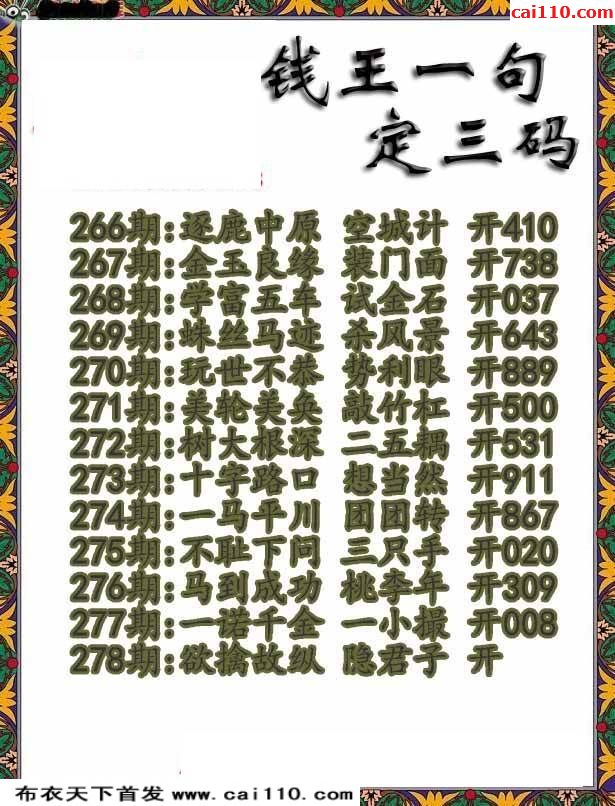 cai110.com
钱王一句
定三码
266期:逐鹿中原 空城计 开410
267期:金玉良缘 装门面 开738
268期:学富五车 试金石 开037
269期:蛛丝马迹 杀风景 开643
270期:玩世不恭 势利眼 开889
271期:美轮美奂 敲竹杠 开500
272期:树大根深 二五耦 开531
273期:十字路口 想当然 开911
274期:一马平川 团团转 开867
275期:不耻下问 三只手 开020
276期:马到成功 桃李年 开309
277期:一诺千金 一小撮 开008
278期:欲擒故纵 隐君子 开
布衣天下首发 www.cai110.com